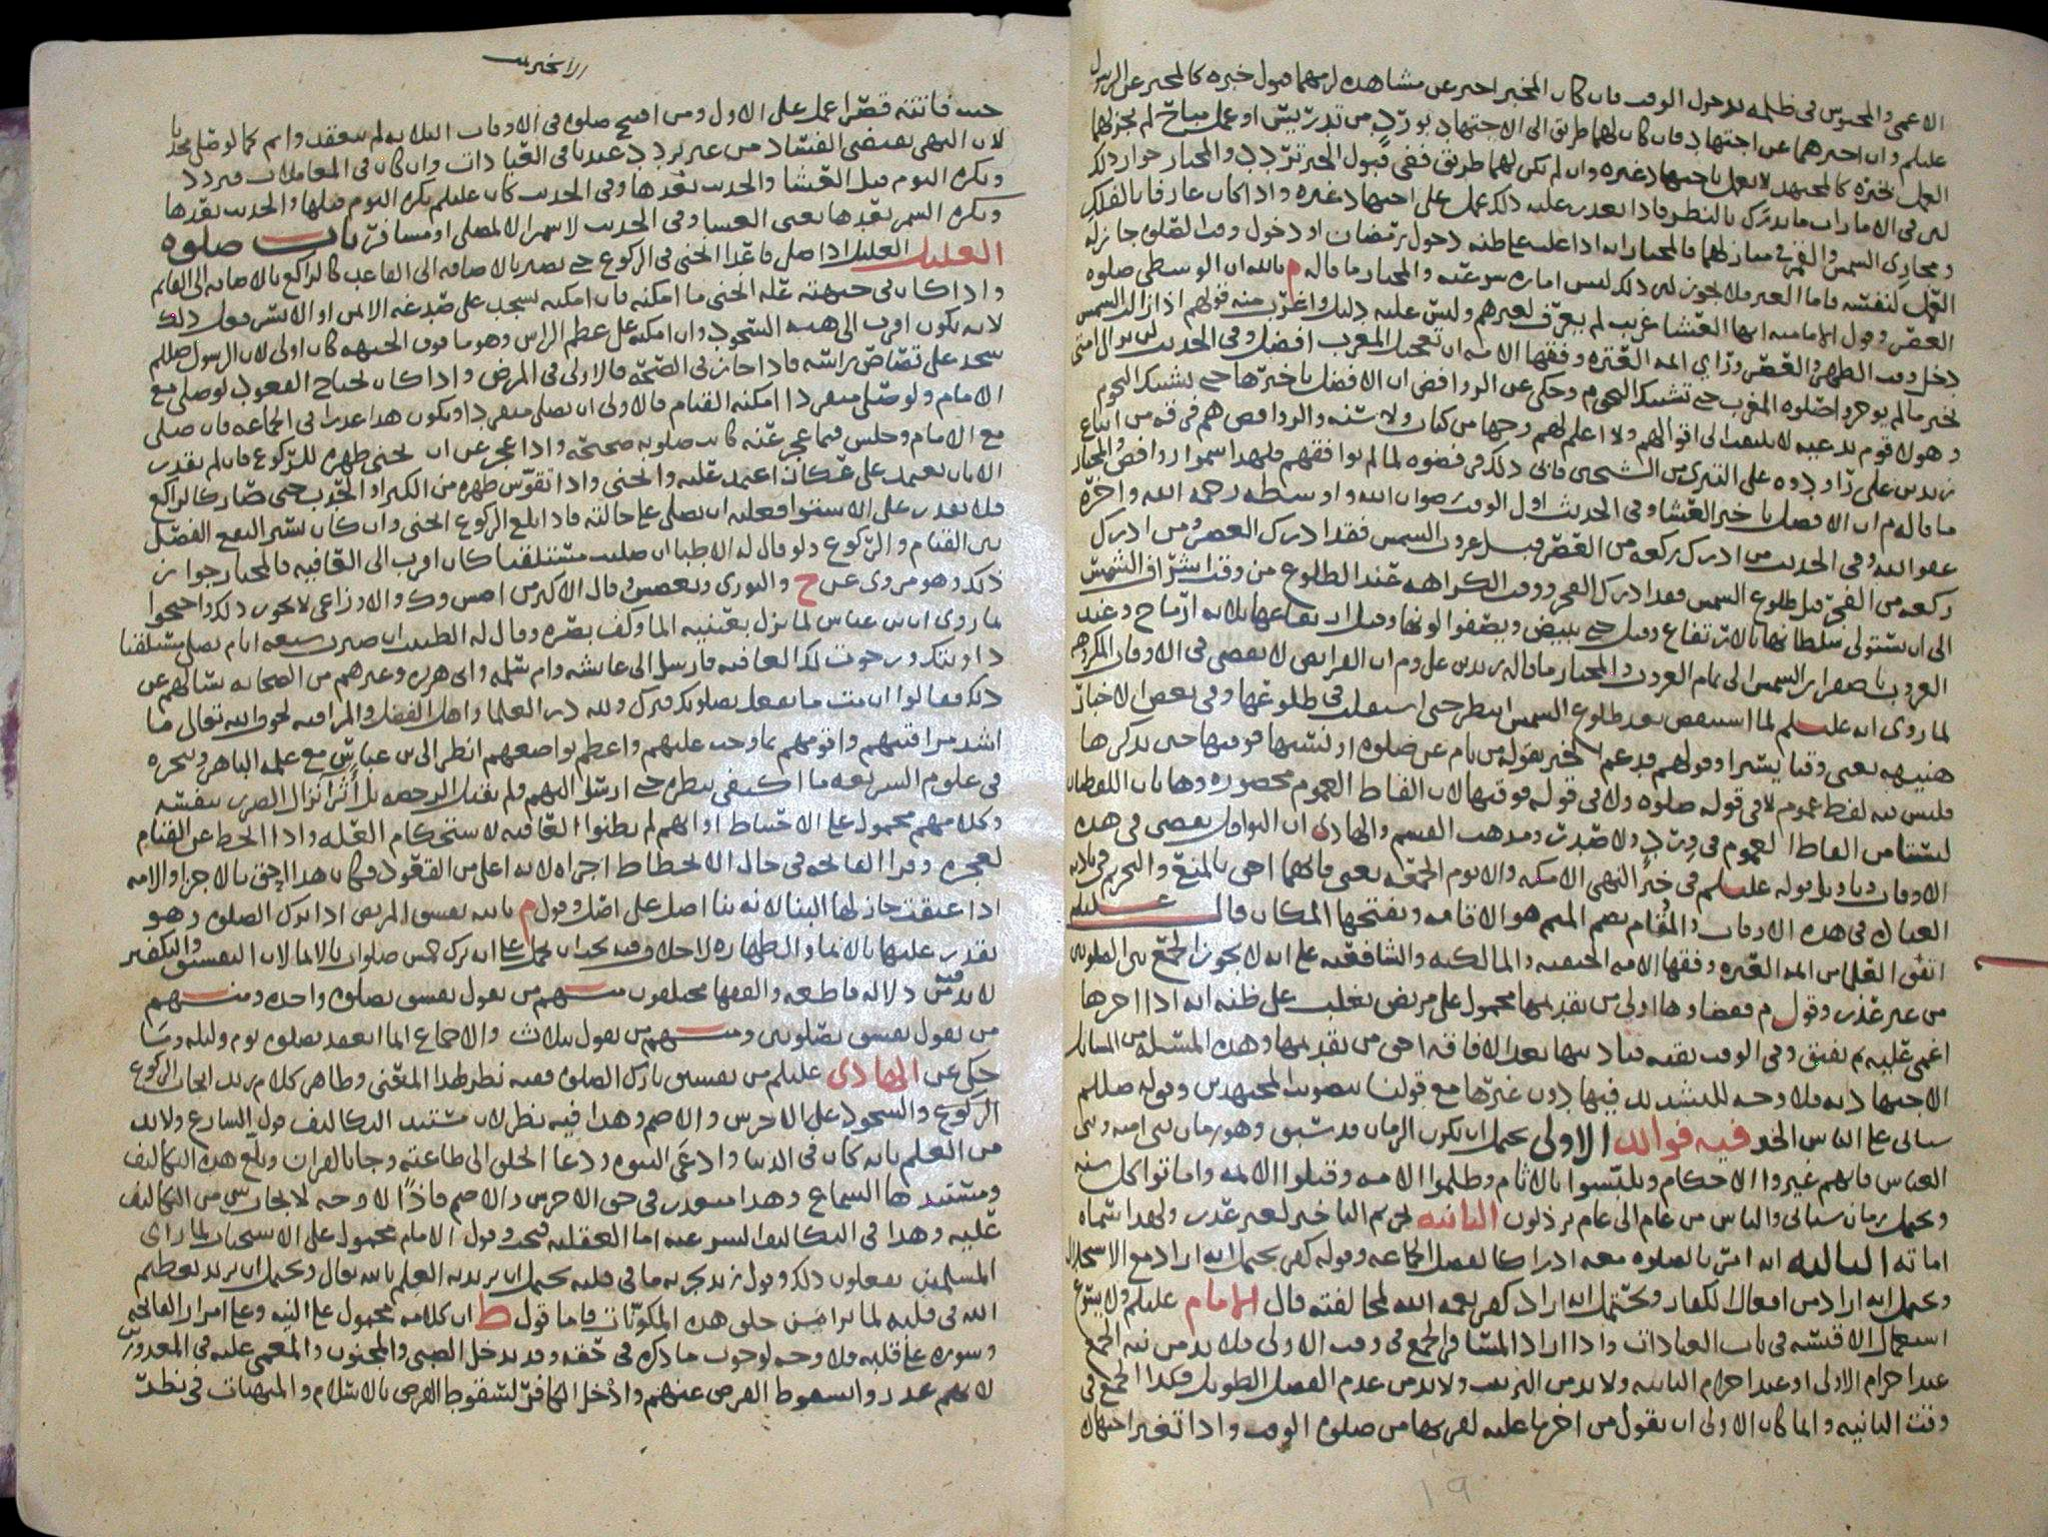 الاعمى والمحبوس في ظلمه بدخول الوقت فان كان المخبر اخبر عن مشاهده لزمهما قبول خبره كالمخبر عن الرسول
عليلم وان اخبرهما عن اجتهاد فان كان لهما طريق الى الاجتهاد بورد من تدريس او عمل مباح لم يجز لهما
العمل بخبره كالمجتهد لا يعمل باجتهاد غيره وان لم يكن لهما طريق ففي قبول الخبر تردد والمختار جواز ذلك
لان في الامارات ما يدرك بالنظر فاذا تعذر عليه ذلك عمل على اجتهاد غيره واذا كان عارفا بالفلك
ومجاري الشمس والقمر في منازلهما فالمختار انه اذا غلب على ظنه دخول رمضان او دخول وقت الصلوه جاز له
العمل لنفسه فاما الغير فلا يجوز لان ذلك ليس اماره شرعيه والمختار ما قاله م بالله ان الوسطى صلوه
العصر وقول الاماميه انها العشا غريب لم يعرف لغيرهم وليس عليه دليل واغرب منه قولهم اذا زالت الشمس
دخل وقت الظهر والعصر وراي ائمه العتره وفقها الامه ان تعجيل المغرب افضل وفي الحديث لن تزال امتي
بخير ما لم يوخروا صلوه المغرب حتى تشتبك النجوم وحكي عن الروافض ان الافضل تاخيرها حتى تشتبك النجوم
وهولا قوم بدعيه لا يلتفت الى اقوالهم ولا اعلم لهم وجها من كتاب ولا سنه والروافض هم فرقه من اتباع
زيد بن علي راودوه على التبري من الشيخين فابى ذلك فرفضوه لما لم يوافقهم فلهذا سموا روافض والمختار
ما قاله م ان الافضل تاخير العشا وفي الحديث اول الوقت رضوان الله واوسطه رحمه الله واخره
عفو الله وفي الحديث من ادرك ركعه من العصر قبل غروب الشمس فقد ادرك العصر ومن ادرك
ركعه من الفجر قبل طلوع الشمس فقد ادرك الفجر ووقت الكراهه عند الطلوع من وقت اشراق الشمس
الى ان يستولي سلطانها بالارتفاع وقيل حتى تبيض ويصفوا لونها وقيل ارتفاعها ثلاثه ارماح وعند
الغروب باصفرار الشمس الى تمام الغروب والمختار ما قاله زيد بن علي وم ان الفرايض لا تقضى في الاوقات المكروهه
لما روي انه عليلم لما استيقض بعد طلوع الشمس انتظر حتى استقلت في طلوعها وفي بعض الاخبار
هنيهه يعني وقتا يسيرا وقولهم قد عم الخبر بقوله من نام عن صلوه او نسيها فوقتها حين يذكرها
فليس فيه لفظ عموم لا في قوله صلوه ولا في قوله فوقتها لان الفاظ العموم محصوره وهاتان اللفظتان
ليستا من الفاظ العموم في ورد ولا صدر ومذهب القسم والهادي ان النوافل تقضى في هذه
الاوقات وتاويل قوله عليلم في خبر النهي الا مكه والا يوم الجمعه يعني فانهما احق بالمنع والتحريم في تاديه
العباد في هذه الاوقات والمُقام بضم الميم هو الاقامه وبفتحها المكان قال عليلم
اتفق العلما من ائمه العتره وفقها الامه الحنفيه والمالكيه والشافعيه على انه لا يجوز الجمع بين الصلوتين
من غير عذر وقول م فقضاوها اولى من تقديمها محمول على مريض يغلب على ظنه انه اذا اخرها
اغمي عليه ثم يفيق وفي الوقت بقيه فتاديتها بعد الافاقه احق من تقديمها وهذه المسئله من المسايل
الاجتهاديه فلا وجه للتشديد فيها دون غيرها مع قولنا بتصويب المجتهدين وقوله صللم
سياتي على الناس الخبر فيه فوايد الاولى يحتمل ان يكون الزمان قد سبق وهو زمان بني اميه وبني
العباس فانهم غيروا الاحكام وتلبسوا بالاثام وظلموا الامه وقتلوا الائمه واماتوا كل سنه
ويحتمل زمان سياتي والناس من عام الى عام يرذلون الثانيه تحريم التاخير لغير عذر ولهذا سماه
اماته الثالثه انه امر بالصلوه معه ادراكا لفضل الجماعه وقوله كفر يحتمل انه اراد مع الاستحلال
ويحتمل انه اراد من افعال الكفار ويحتمل انه اراد كفر نعمه الله لمخالفته قال الامام عليلم ولا يسوغ
استعمال الاقيسه في باب العبادات واذا اراد المسافر الجمع في وقت الاولى فلا بد من نيه الجمع
عند احرام الاولى او عند احرام الثانيه ولا بد من الترتيب ولا بد من عدم الفصل الطويل وكذا الجمع في
وقت الثانيه وانما كان الاولى ان يقول من اخرها عليه لقربها من صلوه الوقت واذا تغير اجتهاد
١٩
الاخيرين
حتى فاتته قصر اعمل على الاول ومن افتتح صلوه في الاوقات الثلاثه لم تنعقد واثم كما لو صلى محدثا
لان النهي يقتضي الفساد من غير تردد عندنا في العبادات وان كان في المعاملات فتردد
ويكره النوم قبل العشا والحديث بعدها وفي الحديث كان عليلم يكره النوم قبلها والحديث بعدها
ويكره السمر بعدها يعني العشا وفي الحديث لا سمر الا لمصل او مسافر باب صلوه
العليل العليل اذا صلى قاعدا انحنى في الركوع حتى يصير بالاضافه الى القاعد كالراكع بالاضافه الى القايم
واذا كان في جبهته عله انحنى ما امكنه فان امكنه يسجد على صدغه الايمن او الايسر فعل ذلك
لانه يكون اقرب الى هيئه السجود وان امكنه على عظم الراس وهو ما فوق الجبهه كان اولى لان الرسول صللم
سجد على قصاص راسه فاذا جاز في الصحه فالاولى في المرض واذا كان يحتاج القعود لو صلى مع
الامام ولو صلى منفردا امكنه القيام فالاولى ان يصلي منفردا ويكون هذا عذرا في الجماعه فان صلى
مع الامام وجلس فيما عجز عنه كانت صلوته صحيحه واذا عجز عن ان يحني ظهره للركوع فان لم يقدر
الا بان يعتمد على عكاز اعتمد عليه وانحنى واذا تقوس ظهره من الكبر او الحدب حتى صار كالراكع
فلا يقدر على الاستوا فعليه ان يصلي على حالته فاذا بلغ الركوع انحنى وان كان يسيرا ليقع الفصل
بين القيام والركوع ولو قال له الاطبا ان صليت مستلقيا كان اقرب الى العافيه فالمختار جواز
ذلك وهو مروي عن ح والثوري وبعض وقال الاكثر من اصش وك والاوزاعي لا يجوز ذلك واحتجوا
بما روي ان ابن عباس لما نزل بعينيه الما وكف بصره وقال له الطبيب ان صبرت سبعه ايام تصلي مستلقيا
داويتك ورجوت لك العافيه فارسل الى عايشه وام سلمه وابي هريره وغيرهم من الصحابه يسالهم عن
ذلك فقالوا ان مت ما تفعل بصلوتك فترك ولله در العلما واهل الفضل والمراقبه لحق الله تعالى ما
اشد مراقبتهم واقومهم بما وجب عليهم واعظم تواضعهم انظر الى ابن عباس مع علمه الباهر وتبحره
في علوم الشريعه ما اكتفى بنظره حتى ارسل اليهم ولم يقبل الرخصه بل أثر انزال الضرر بنفسه
وكلامهم محمول على الاحتياط او انهم لم يظنوا العافيه لاستحكام العله واذا انحط عن القيام
لعجزه وقرا الفاتحه في حال الانحطاط اجزاه لانه اعلى من القعود وكان هذا احق بالاجزا والامه
اذا عتقت جاز لها البنا لانه بنا اصل على اصل وقول م بالله يفسق المريض اذا ترك الصلوه وهو
يقدر عليها بالايما والطهاره بلا خلاف فيه يجب ان يحمل على انه ترك خمس صلوات بالايما لان التفسيق والتكفير
لا بد فيه من دلاله قاطعه والفقها مختلفون منهم من يقول يفسق بصلوه واحده ومنهم
من يقول يفسق بصلوتين ومنهم من يقول بثلاث والاجماع انما انعقد بصلوه يوم وليله وما
حكي عن الهادي عليلم من تفسيق تارك الصلوه ففيه نظر لهذا المعنى وظاهر كلام زيد ايجاب الركوع
الركوع والسجود على الاخرس والاصم وهذا فيه نظر لان مستند التكاليف قول الشارع ولا بد
من العلم بانه كان في الدنيا وادعى النبوه ودعا الخلق الى طاعته وجا بالقران وبلغ هذه التكاليف
ومستندها السماع وهذا متعذر في حق الاخرس والاصم فاذًا لا وجه لايجاب شي من التكاليف
عليه وهذا في التكاليف الشرعيه اما العقليه فتجب وقول الامام محمول على الاستحباب لما راى
المسلمين يفعلون ذلك وقول زيد يجزيه ما في قلبه يحتمل ان يريد به العلم بالله تعالى ويحتمل ان يريد تعظيم
الله في قلبه لما يرا من خلق هذه المكونات فاما قول ط ان كلامه محمول على النيه وعلى امرار الفاتحه
وسوره على قلبه فلا وجه لوجوب ما ذكره في حقه وقد يدخل الصبي والمجنون والمغمى عليه في المعذورين
لانهم عذروا لسقوط الفرض عنهم وادْخل الكافر لسقوط الفرض بالاسلام والمبهمات في نظر